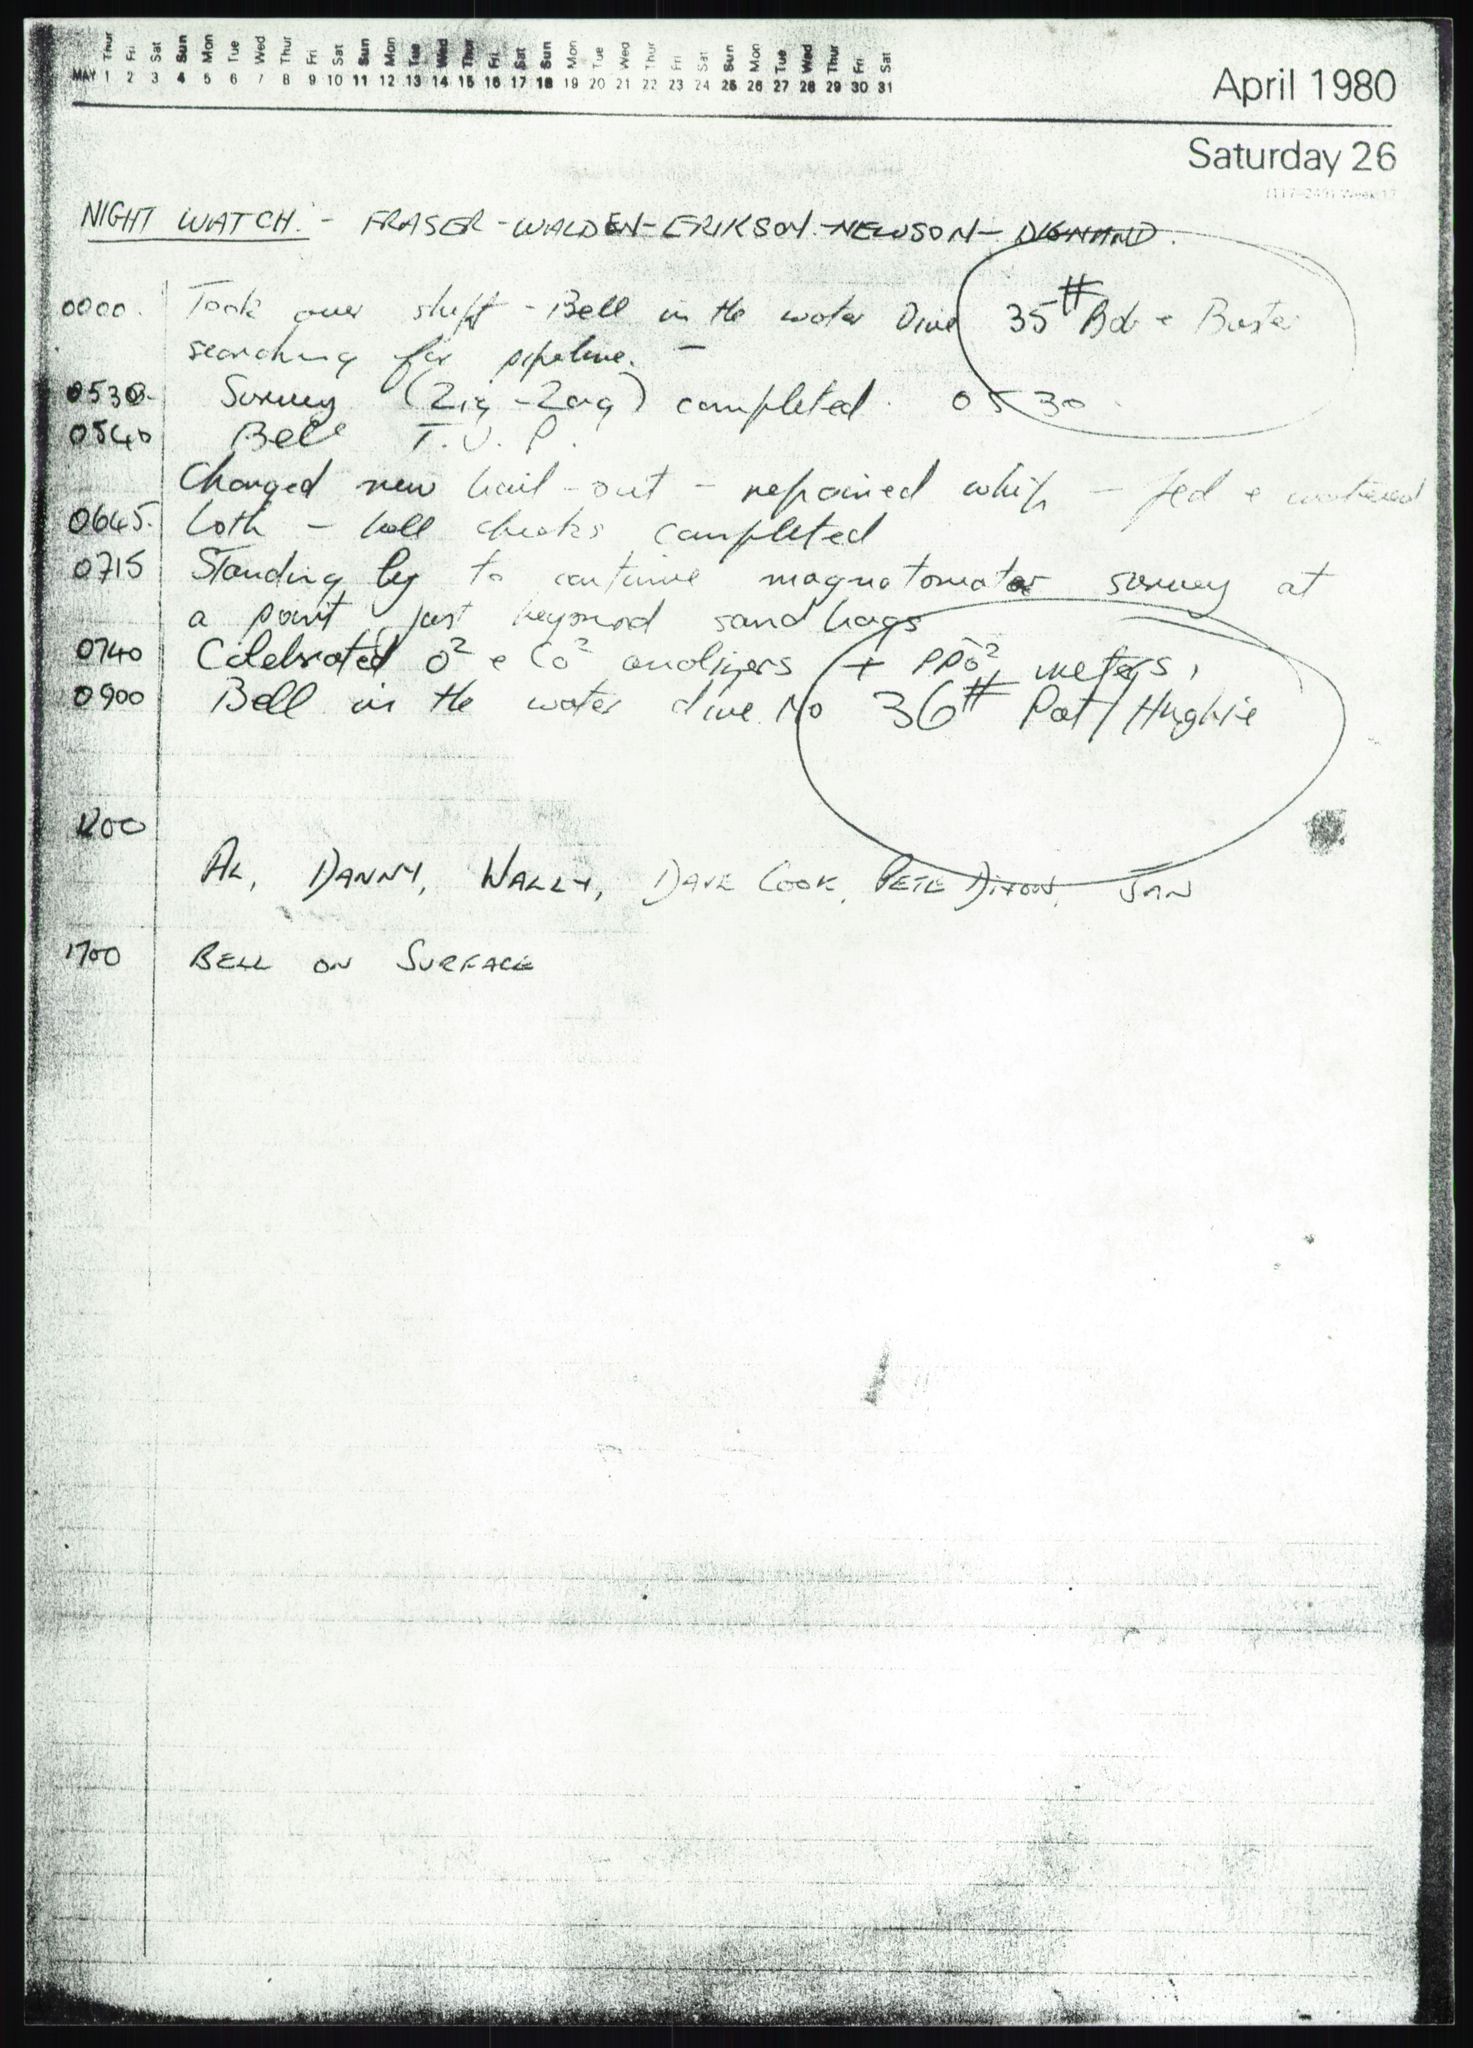 Thur Fri Sat Sun Mon Tue Wed Thur Fri Sat Sun Mon Tue Wed Thur Fri Sat Sun Mon Tue Wed Thur Fri Sat Sun Mon Tue Wed Thur Fri Sat
MAY 1 2 3 4 5 6 7 8 9 10 11 12 13 14 15 16 17 18 19 20 21 22 23 24 25 26 27 28 29 30 31
April 1980
Saturday 26
(117-249) Week 17
NIGHT WATCH:- FRASER - WALDEN - ERIKSON - NEWSON - DIGNAND.
0000. Took over shift - Bell in the water Dive 35# Bob + Buster
searching for pipeline. -
0530. Survey (Zig-Zag) completed. 0530.
0540 Bell T.U.P.
Changed new bail-out - repaired whip - fed + watered
0645. both - bell checks completed
0715 Standing by to continue magnatomator survey at
a point just beyond sand bags
0740 Calebrated O² + CO² analizers + PPO² meters,
0900 Bell in the water dive No 36# Pat/Hughie
1200
AL, DANNY, WALLY, DAVE COOK, PETE DIXON, JAN
1700 BELL ON SURFACE